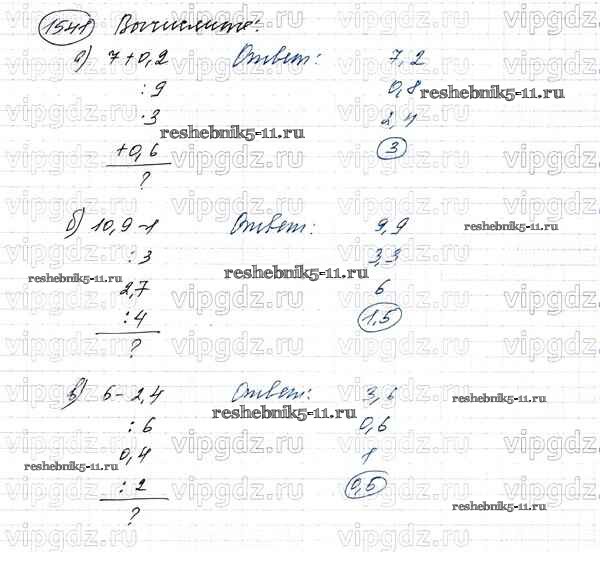 1541 Вычислите:
а) 7+0,2 Ответ: 7,2
:9 0,8
·3 2,4
+0,6 3
?
б) 10,9-1 Ответ: 9,9
:3 3,3
2,7 6
:4 1,5
?
в) 6-2,4 Ответ: 3,6
:6 0,6
0,4 1
:2 0,5
?
vipgdz.ru
reshebnik5-11.ru